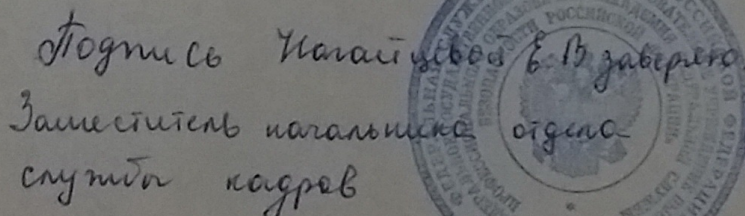 Подпись Нагайцевой Е.В заверяю.
Заместитель начальника отдела
службы кадров